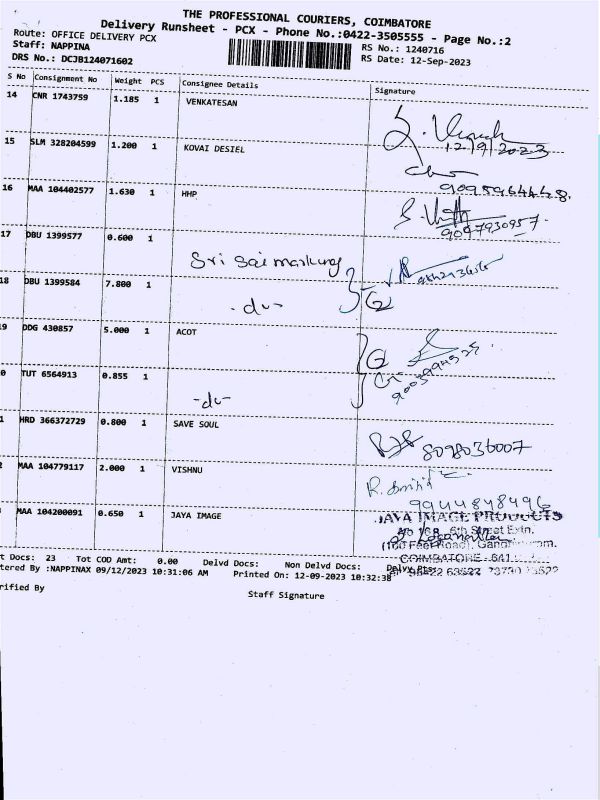 THE PROFESSIONAL COURIERS, COIMBATORE
Delivery Runsheet - PCX - Phone No.:0422-3505555 - Page No.:2
Route: OFFICE DELIVERY PCX
Staff: NAPPINA
RS No.: 1240716
DRS No.: DCJB124071602
RS Date: 12-Sep-2023
S No Consignment No Weight PCS Consignee Details Signature
14 CNR 1743759 1.185 1 VENKATESAN
12/9/2023
15 SLM 328204599 1.200 1 KOVAI DESIEL
9095964448.
16 MAA 104402577 1.630 1 HHP
9047930957.
17 DBU 1399577 0.600 1
Sri Sai
18 DBU 1399584 7.800 1
-do-
9 DDG 430857 5.000 1 ACOT
0 TUT 6564913 0.855 1
-do-
1 HRD 366372729 0.800 1 SAVE SOUL
8098036007
2 MAA 104779117 2.000 1 VISHNU
9944848496
MAA 104200091 0.650 1 JAYA IMAGE
JAYA IMAGE PRODUCTS
6th Street Extn.
(100 Feet Road),
COIMBATORE - 641
t Docs: 23 Tot COD Amt: 0.00 Delvd Docs: Non Delvd Docs: Delvy Pts:
tered By :NAPPINAX 09/12/2023 10:31:06 AM Printed On: 12-09-2023 10:32:38
rified By
Staff Signature